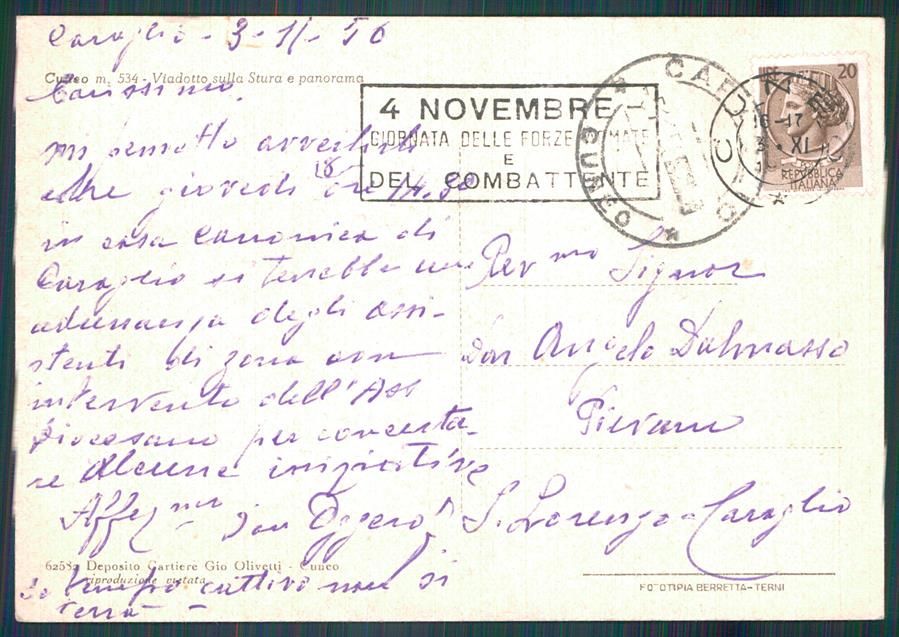 Caraglio - 3-11-56
Cuneo m. 534 - Viadotto sulla Stura e panorama
Carissimo,
mi permetto avvertirti
che giovedì (8) ore 14.30
in casa canonica di
Caraglio si terrebbe una
adunanza degli assi-
stenti di zona con
intervento dell'Ass
Diocesano per concerta-
re alcune iniziative
Aff.mo Don Oggero
Se tempo cattivo non si
terrà
62582 Deposito Cartiere Gio Olivetti - Cuneo
riproduzione vietata
4 NOVEMBRE
GIORNATA DELLE FORZE ARMATE
E
DEL COMBATTENTE
CUNEO
CUNEO
16-17
3. XI
20
REPUBBLICA
ITALIANA
Rev mo Signor
Don Angelo Dalmasso
Pievano
S. Lorenzo - Caraglio
FOTOTIPIA BERRETTA-TERNI